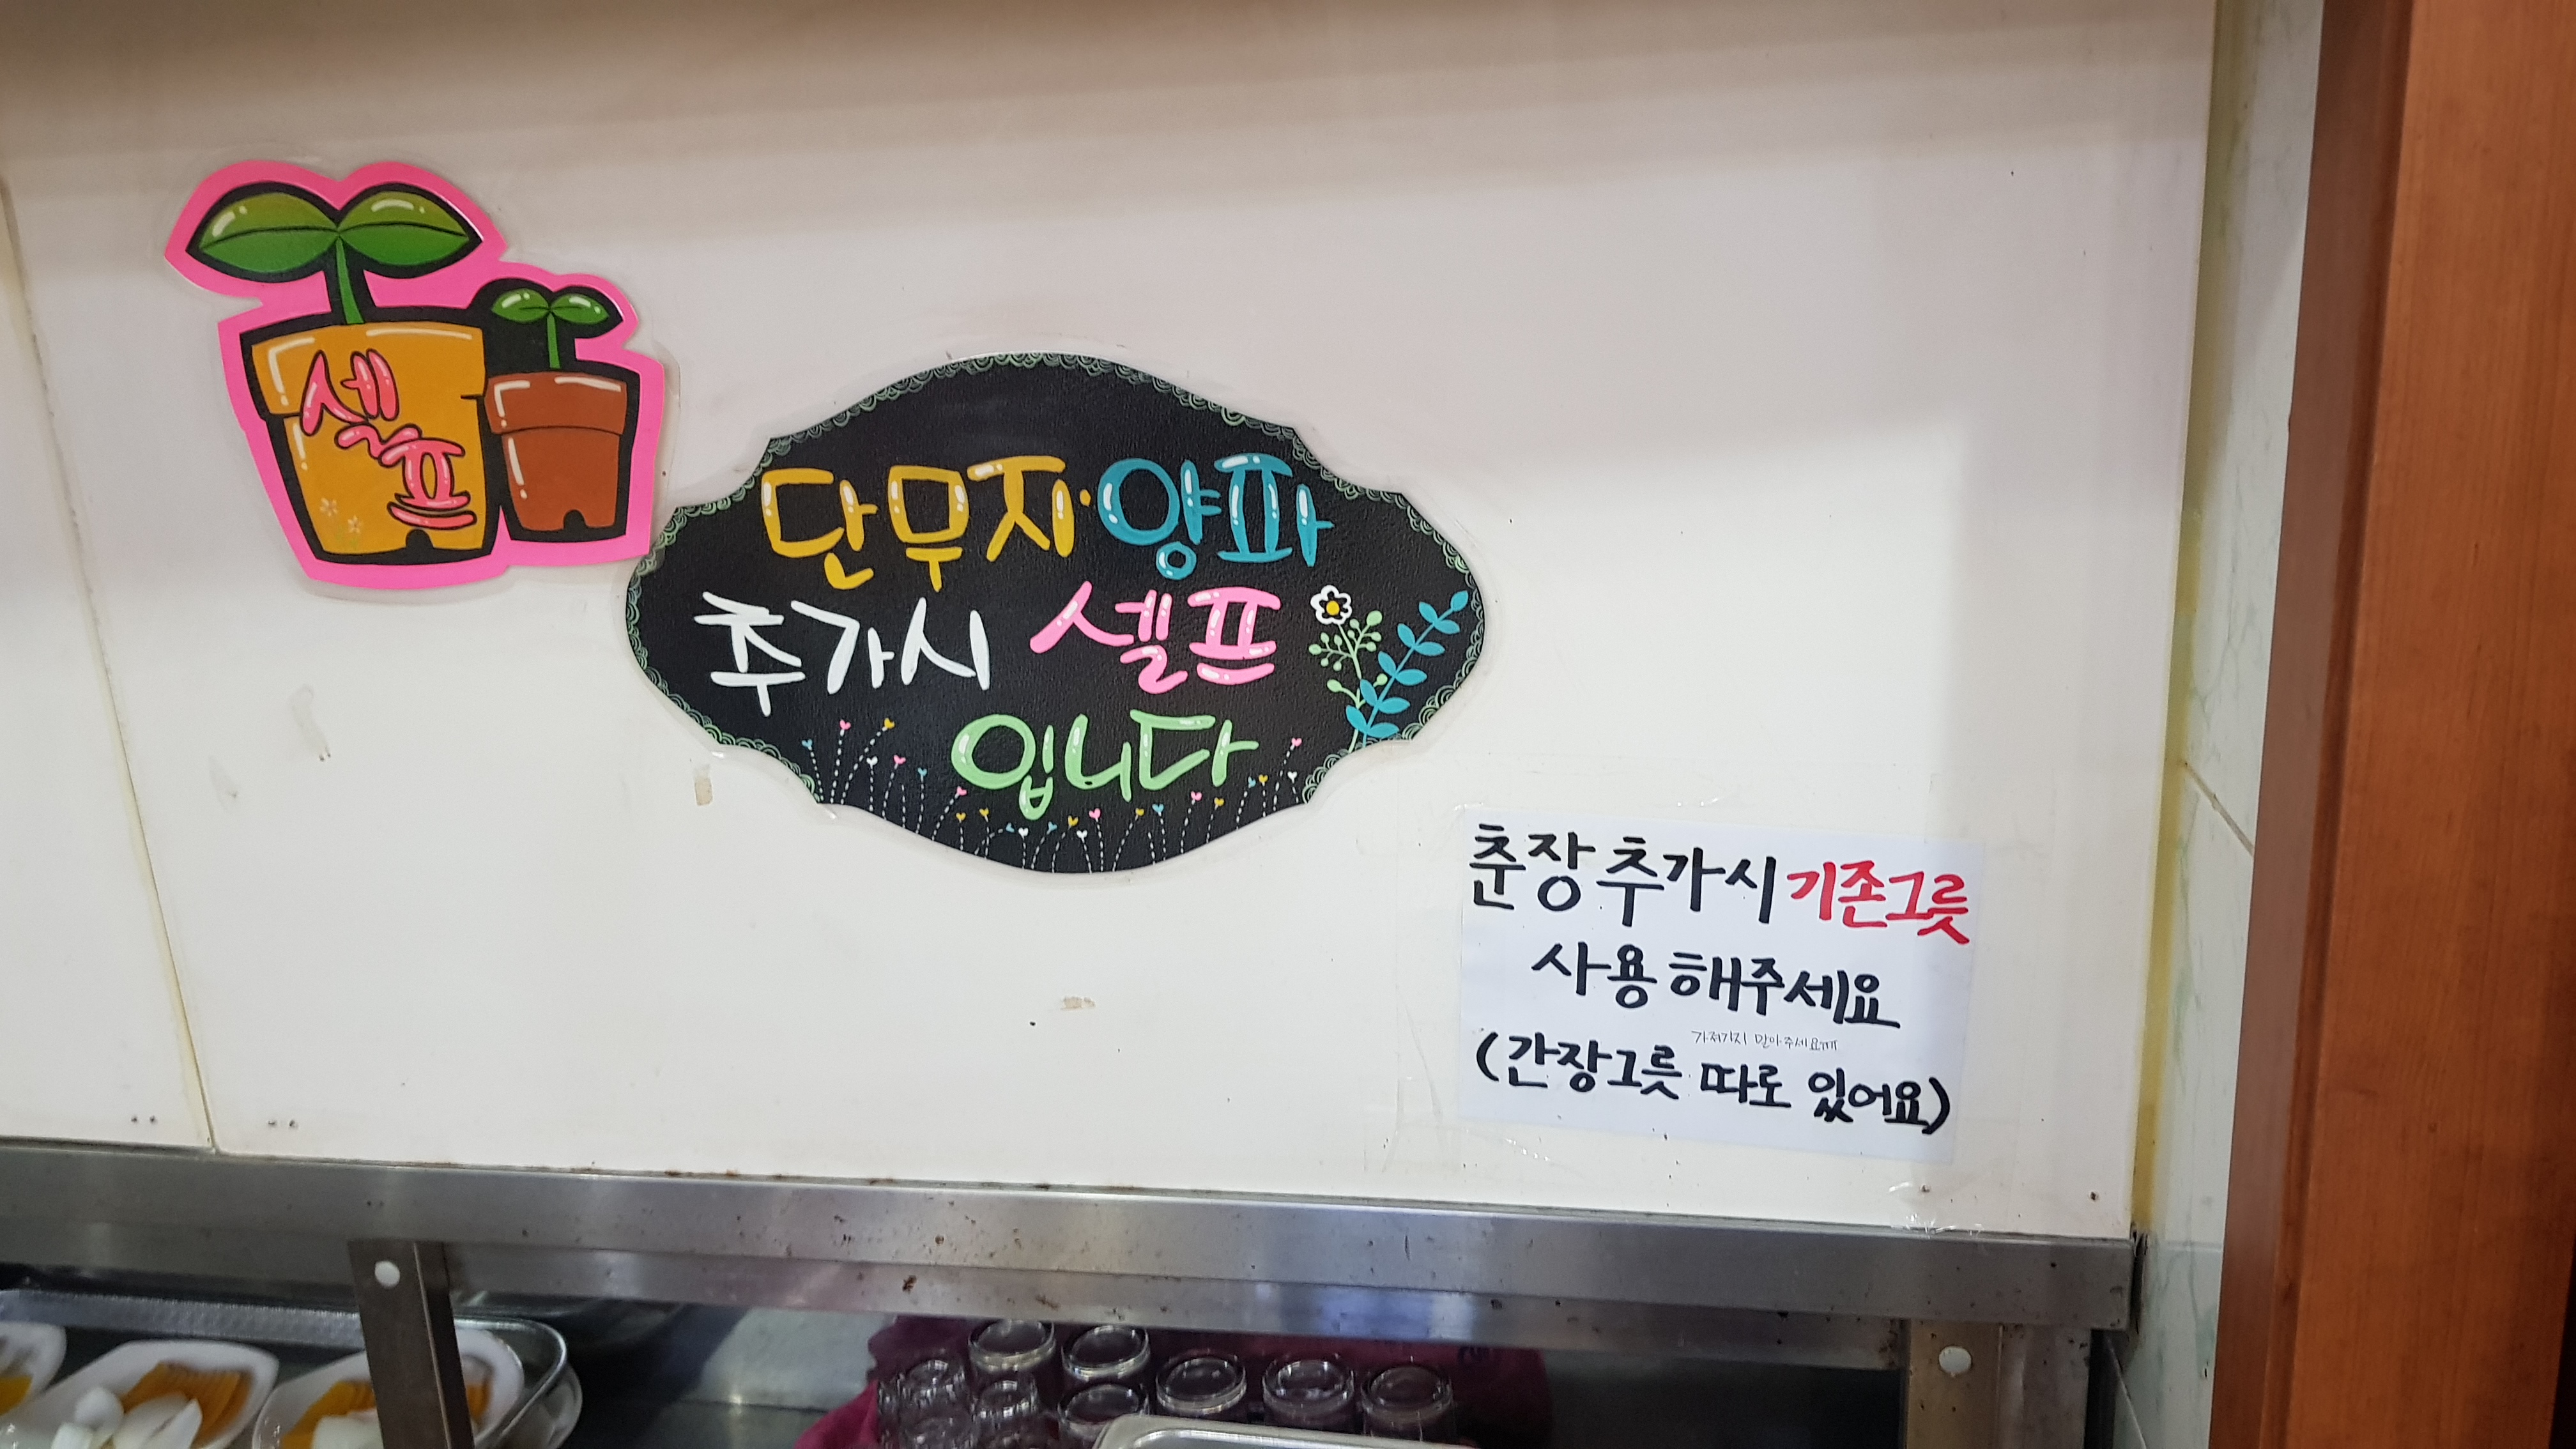 셀프
단무지·양파
추가시 셀프
입니다
춘장 추가시 기존그릇
사용 해주세요
가져가지 말아주세요
(간장그릇 따로 있어요)